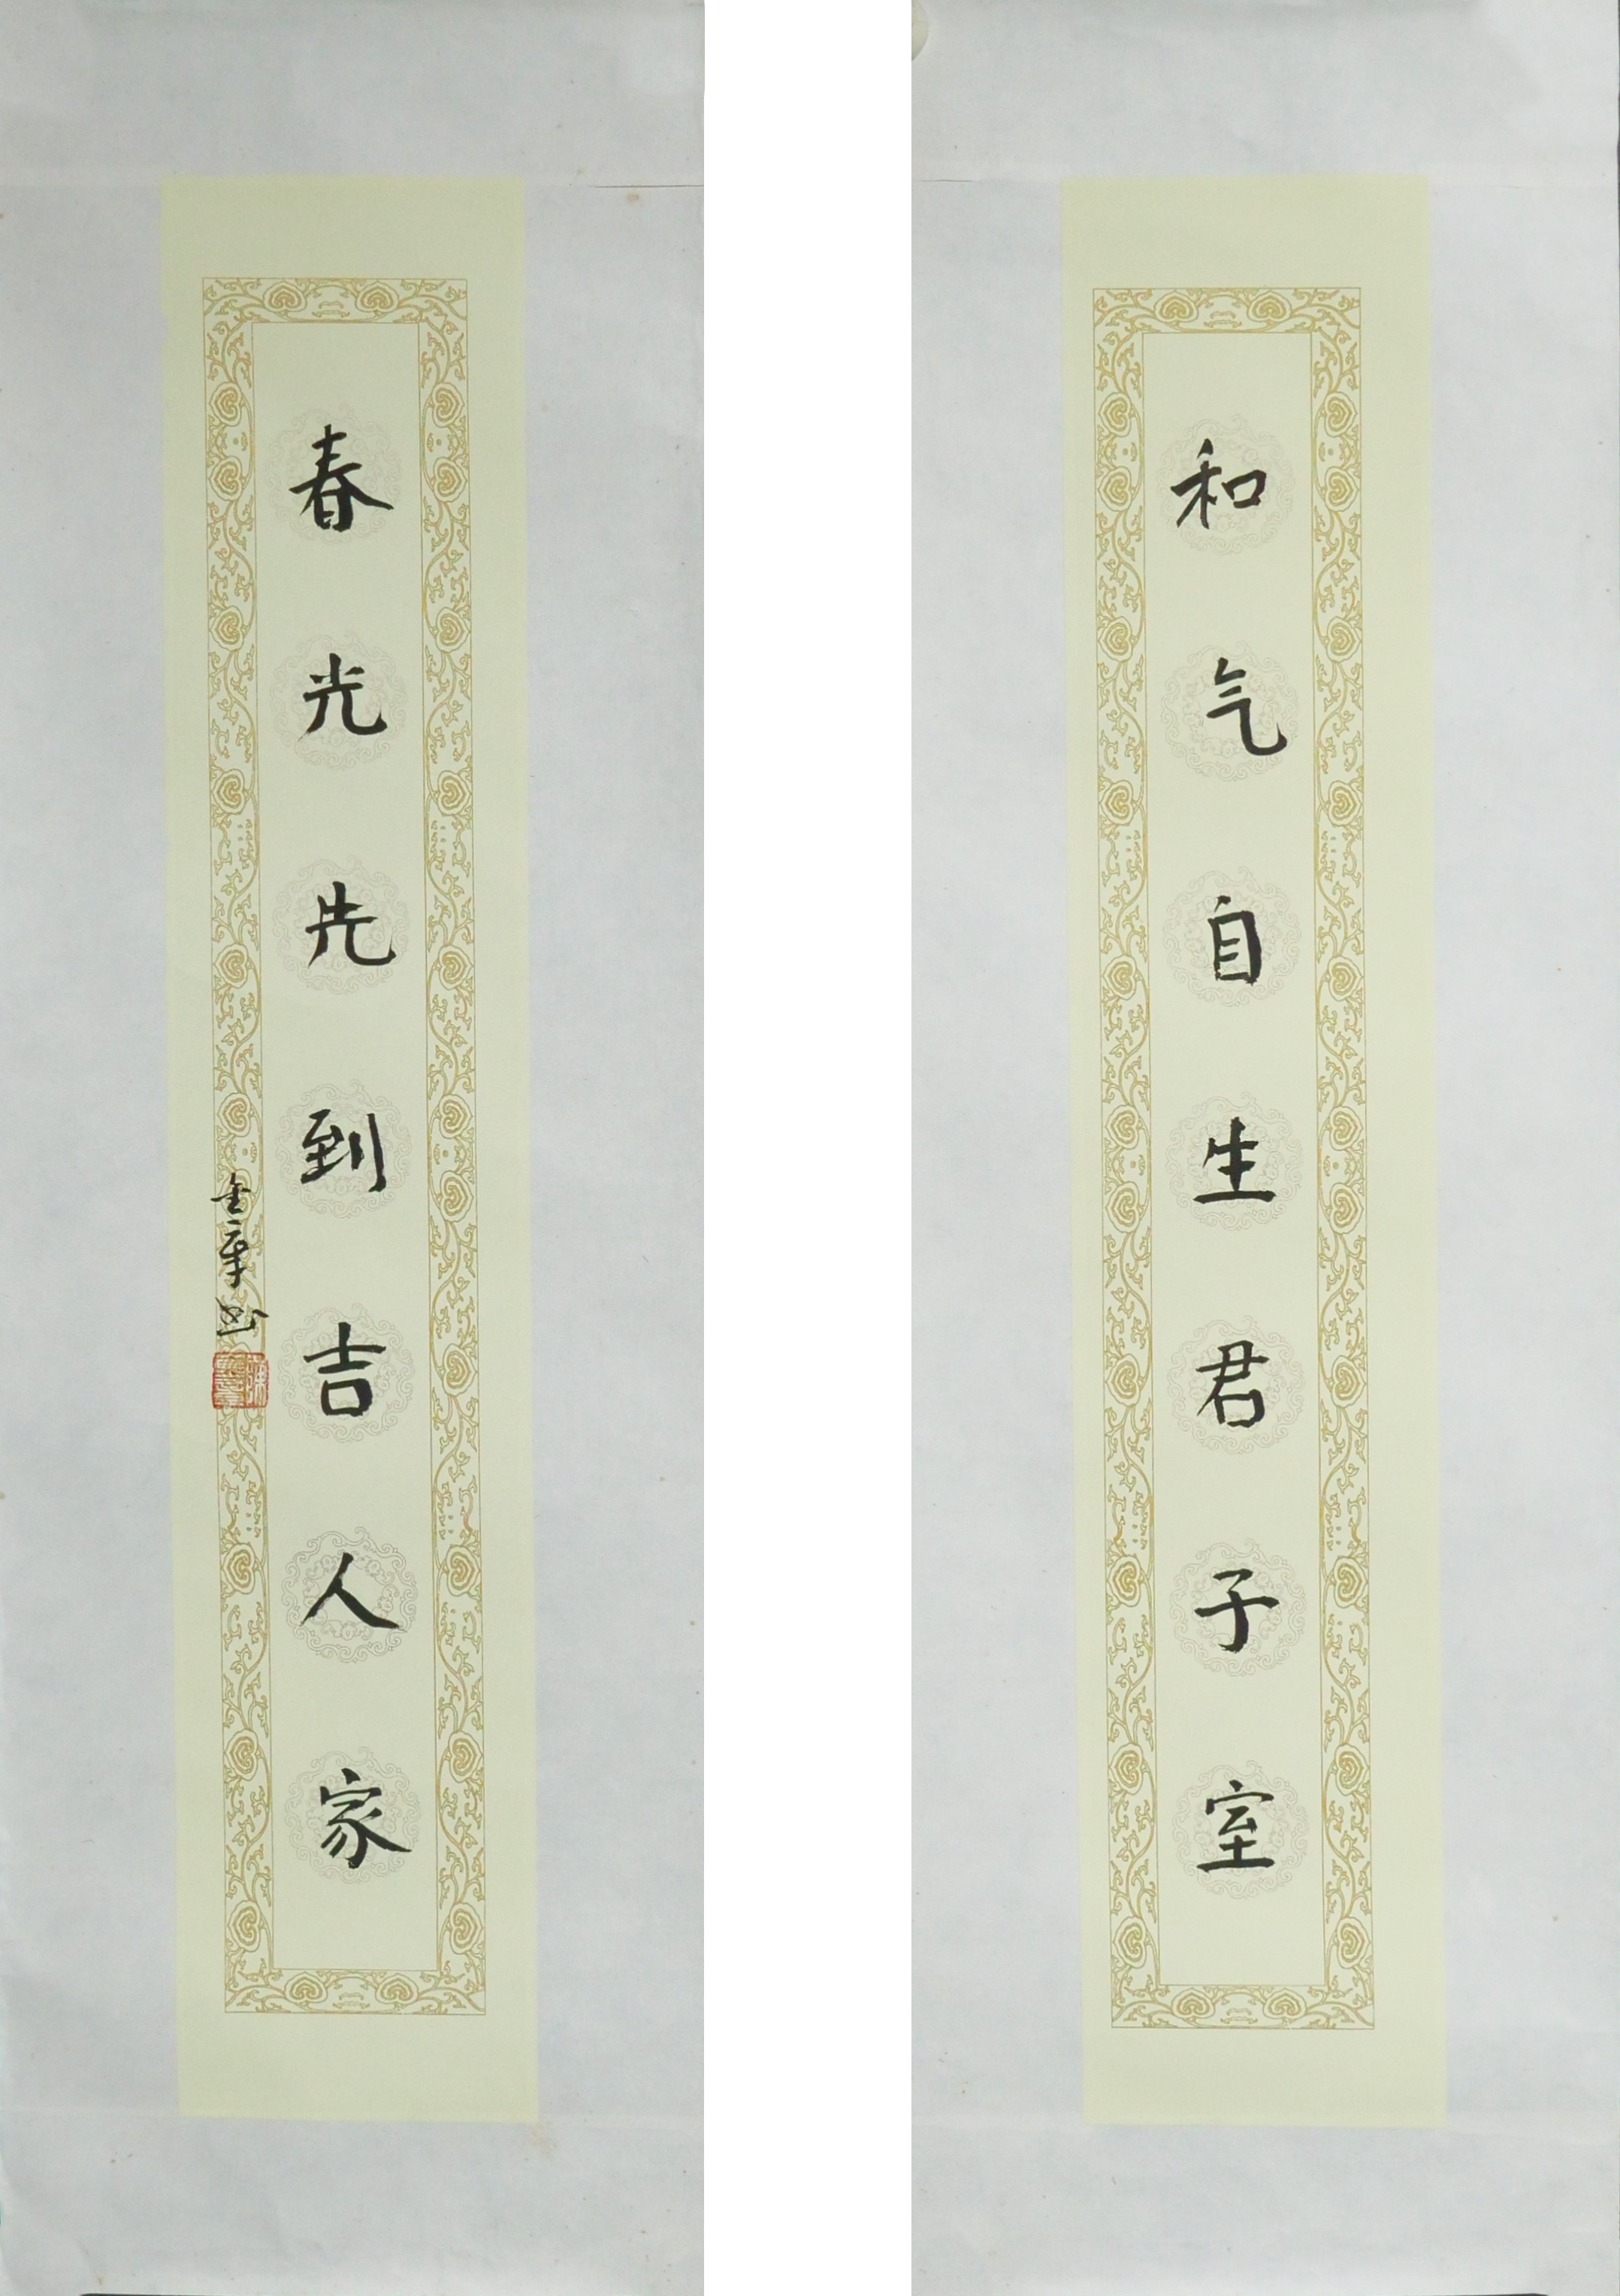 和气自生君子室
春光先到吉人家
金章书